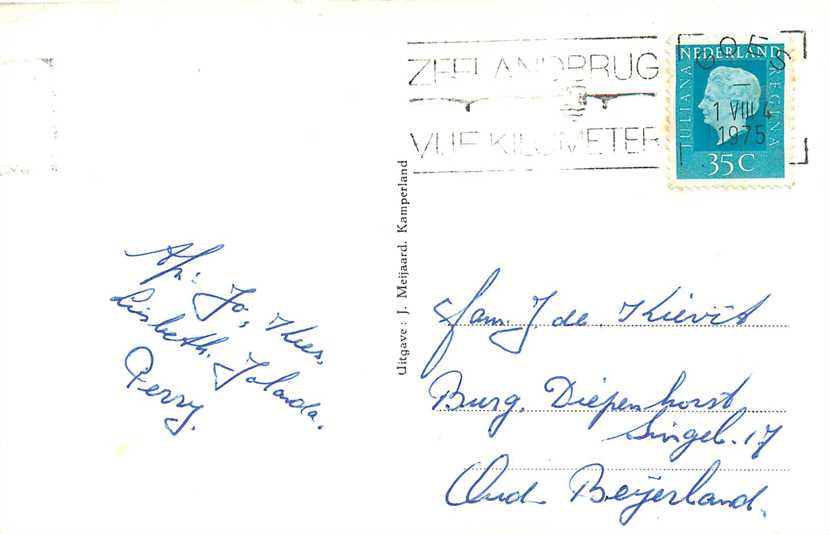 ZEELANDBRUG
VIJF KILOMETER
GOES
1 VIII 4
1975
NEDERLAND
JULIANA
REGINA
35C
Uitgave: J. Meijaard. Kamperland
Afz: Jo, Kees,
Liesbeth. Jolanda.
Perry.
Fam. J. de Kievit
Burg. Diepenhorst
Singel. 17
Oud Beijerland.